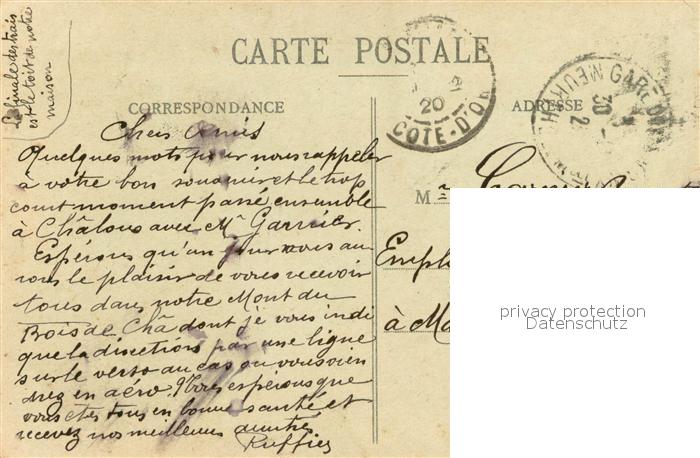 La finale des trais
est le toit de notre
maison
CARTE POSTALE
CORRESPONDANCE
ADRESSE
20
COTE-D'OR
GARE
MEURTH
30
Chers Amis
Quelques mots pour nous rappeler
à votre bon souvenir et le trop
court moment passé ensemble
à Châlons avec Mr Garnier.
Espérons qu'un jour nous au
rons le plaisir de vous recevoir
tous dans notre Mont du
Bois de Châ dont je vous indi
que la direction par une ligne
sur le verso au cas ou vous vien
drez en aéro. Nous espérons que
vous êtes tous en bonne santé et
recevez nos meilleures amitiés
Ruffier
M
Empl
à Ma
privacy protection
Datenschutz